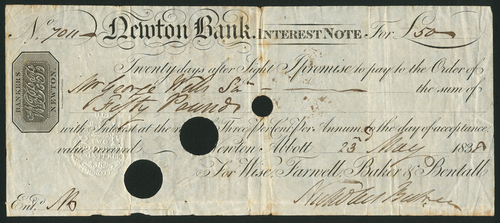 No. 7011 Newton Bank. INTEREST NOTE. For £50
Twenty days after Sight I promise to pay to the Order of
Mr George
the sum of
Fifty Pounds
with Interest at the rate of Three per Cent per Annum to the day of acceptance
value received Newton Abbott 23 May 1838
For Wise, Farwell, Baker & Bentall
Entd.
BANKERS
NEWTON